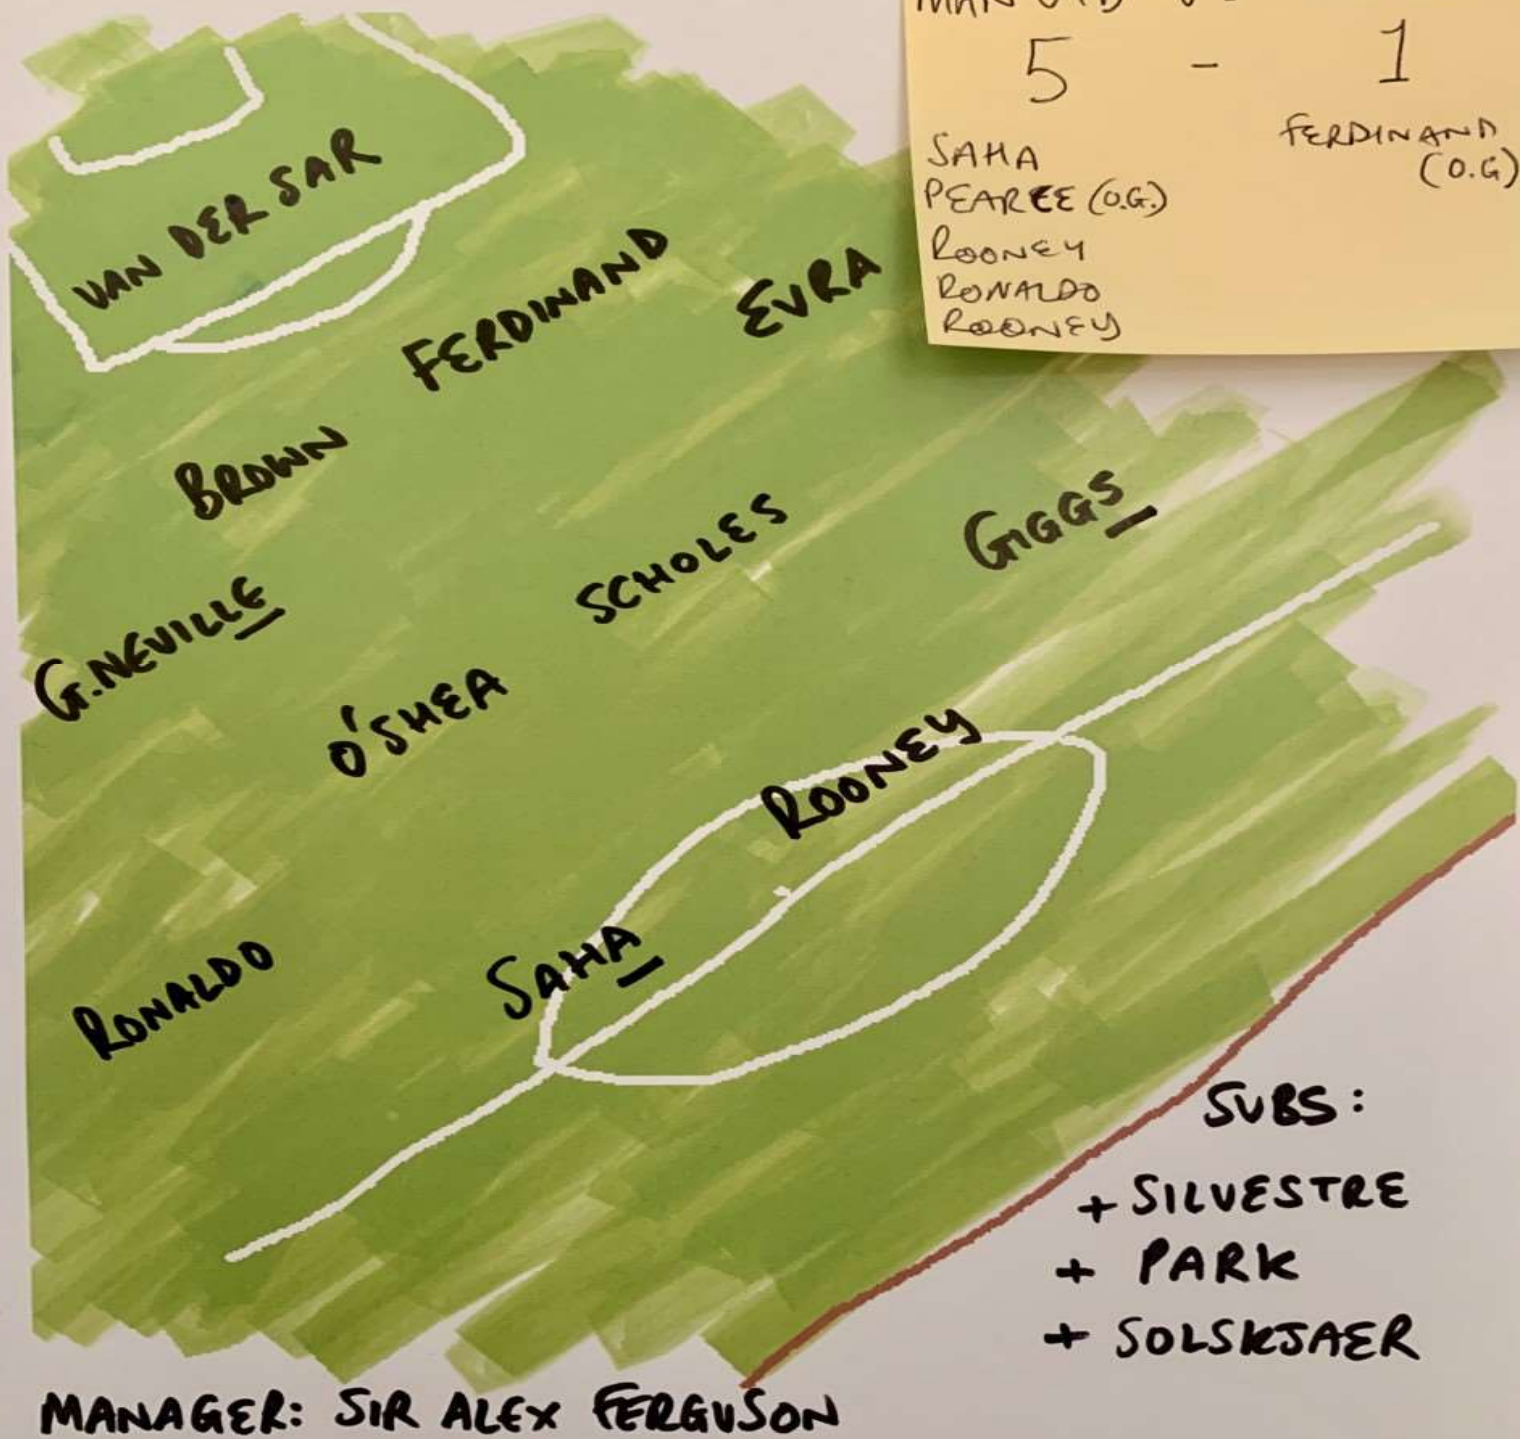 MAN UTD
5 - 1
SAHA
PEARCE (O.G.)
ROONEY
RONALDO
ROONEY
FERDINAND
(O.G)
VAN DER SAR
FERDINAND
EVRA
BROWN
G.NEVILLE
SCHOLES
GIGGS
O'SHEA
ROONEY
RONALDO
SAHA
SUBS:
+ SILVESTRE
+ PARK
+ SOLSKJAER
MANAGER: SIR ALEX FERGUSON